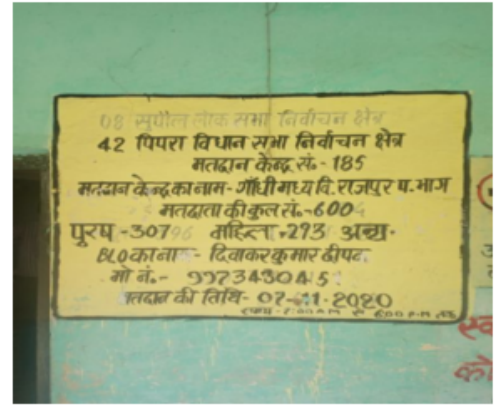 08 सुपौल लोक सभा निर्वाचन क्षेत्र
42 पिपरा विधान सभा निर्वाचन क्षेत्र
मतदान केन्द्र सं.- 185
मतदान केन्द्र का नाम- गाँधी मध्य वि. राजपुर प. भाग
मतदाता की कुल सं.-600
पुरूष -307 महिला -293 अन्य-
BLO का नाम- दिवाकर कुमार
मो नं.-
मतदान की तिथि- 07-11-2020
6:00 P.M